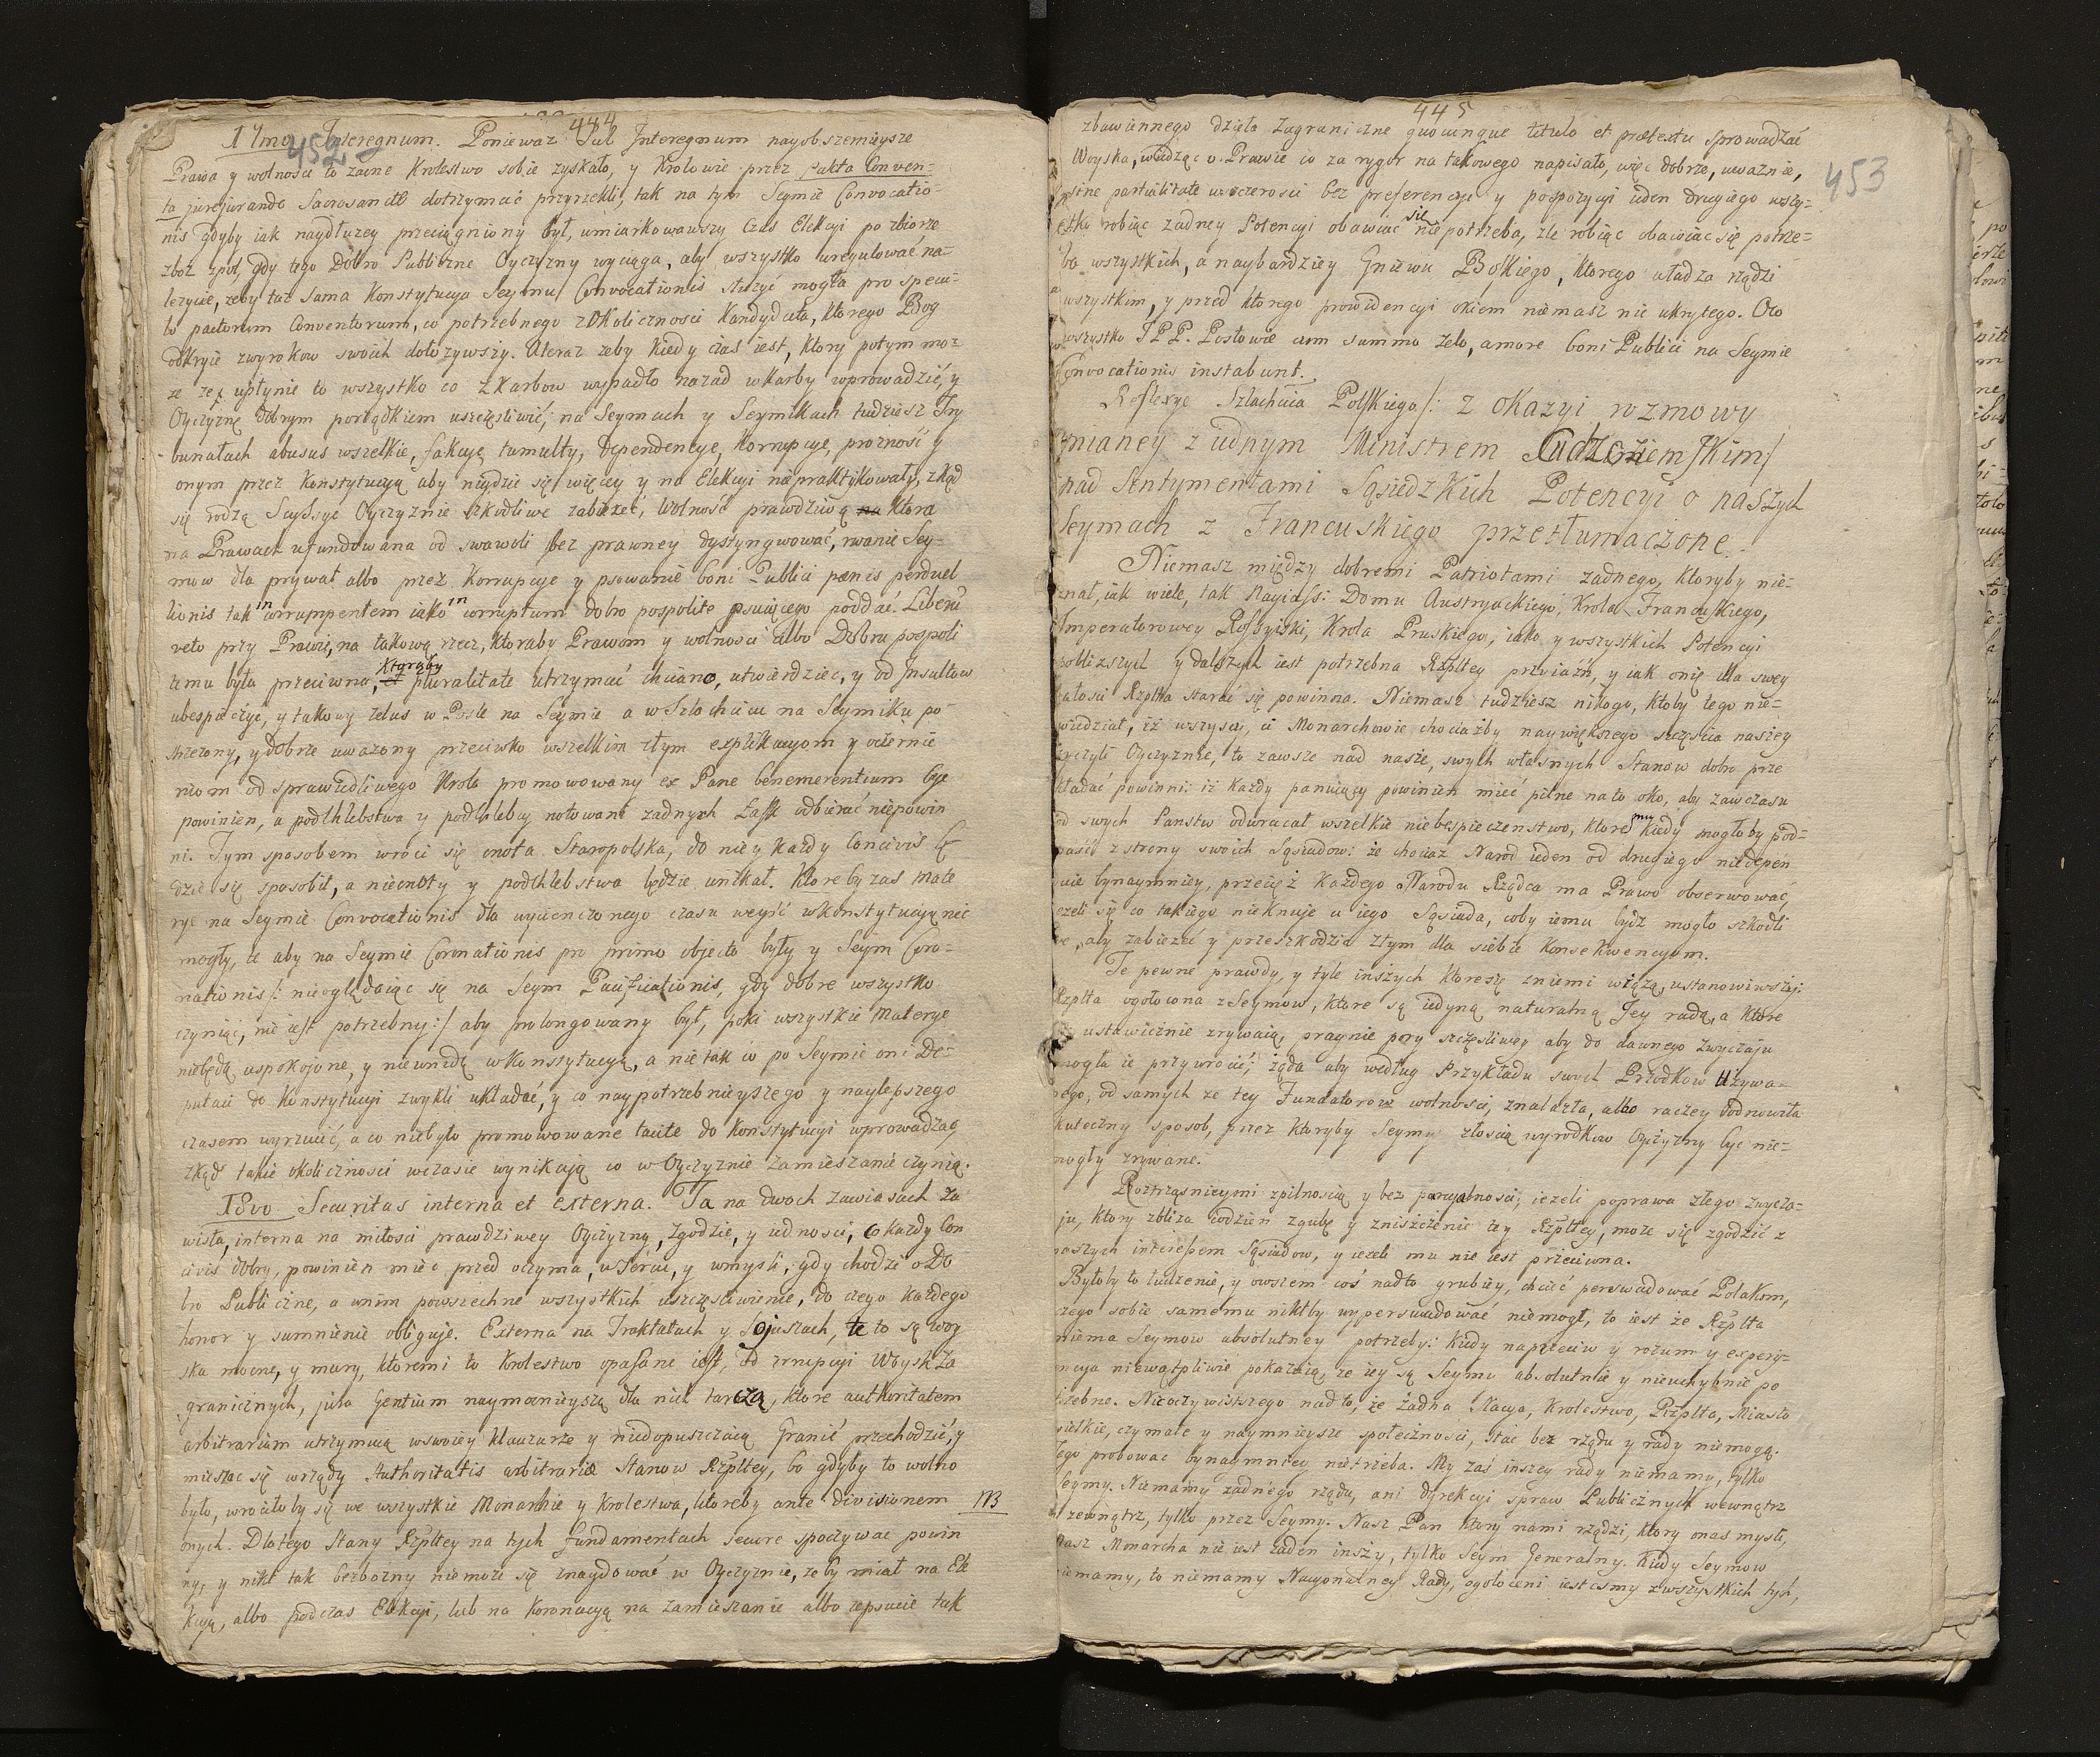 444
452
17mo Interegnum. Poniewaz Sub Interegnum nayobszernieysze
Prawa y wolnosci to zacne Krolestwo sobie zyskało, y Krolowie przez pakta Conven-
ta jurejurando Sacrosancte dotrzymać przyrzekli, tak na tym Seymie Convocatio-
nis gdyby iak naydłuzey przeciągniony był, umiarkowawszy Czas Elekcyi po zbiorze
zboz zpol, gdy tego Dobro Publiczne Oyczyzny wyciąga, aby wszystko uregulować na-
lezycie, zeby taz sama Konstytucya Seymu Convocationis słuzyć mogła pro specu-
lo pactorum Conventorum, co potrzebnego z okolicznosci Kandydata, ktorego Bog
odkryie zwyrokow swoich dołozywszy. Ateraz zeby kiedy czas iest, ktory potym mo-
ze zez upłynie to wszystko co z karbow wypadło nazad w karby wprowadzić, y
Oyczyznę dobrym porządkiem uszczęsliwić, na Seymach y Seymikach tudziesz Try
bunałach abusus wszelkie, fakcye, tumulty, dependencye, korrupcye, prozność y
onym przez Konstytucyą aby nigdzie się więcey y na Elekcyi niepraktykowały, zkąd
się rodzą Scyssye Oyczyznie szkodliwe zabiezeć, Wolność prawdziwą ktora
na Prawach ufundowana od swawoli bez prawney dystyngwować, rwanie Sey-
mow dla prywat albo przez Korrupcye y psowanie boni Publici pœnis perduel
lionis tak in corrumpentem iako in corruptum dobro pospolite psuiącego poddać. Liberũ
veto przy Prawie, na takową rzecz, ktoraby Prawom y wolnosci albo Dobru pospoli
temu była przeciwna, ktorąby pluralitate utrzymać chciano, utwierdziec, y od Insultow
ubespieczyć, y takowy zelus w Posle na Seymie a w Szlachcicu na Seymiku po-
strzezony, y dobrze uwazony przeciwko wszelkim złym explikacyom y oczernie
niom od sprawiedliwego Krola promowowany ex Pane benemerentium być
powinien, a podchlebstwa y podchlebcy notowani zadnych Łask odbierać niepowin
ni. Tym sposobem wroci się cnota Staropolska, do niey kazdy Concivis bę
dzie się sposobił, a niecnoty y podchlebstwa będzie unikał. Ktoreby zas mate
rye na Seymie Convocationis dla wycienczonego czasu weyść w konstytucyą nie
mogły, te aby na Seymie Coronationis pro primo objecto były y Seym Coro-
nationis /: nieoglądaiąc są na Seym Pacificationis, gdy dobre wszystko
czyniąc, nie iest potrzebny :/ aby prolongowany był, poki wszystkie Materye
niebędą uspokojone, y niewnidą w Konstytucyą, a nie tak co po Seymie oni De-
putaci do Konstytucyi zwykli układać, y co naypotrzebnieyszego y naylepszego
czasem wyrzucić, a co niebyło promowowane tacite do Konstytucyi wprowadzać,
zkąd takie okolicznosci wczasie wynikają co w Oyczyznie zamieszanie czynią.
18vo Securitas interna et externa. Ta na dwoch zawiasach za
wisła, interna na miłosci prawdziwey Oyczyzny, Zgodzie, y iednosci, co kazdy Con
civis dobry, powinien miec przed oczyma, w sercu, y wmysli, gdy chodzi o Do
bro Publiczne, a wnim powszechne wszystkich uszczęsliwienie, do czego kazdego
honor y sumnienie obliguje. Externa na Traktatach y Sojuszach, te to są woy
ska mocne, y mury, ktoremi to Krolestwo opasane iest, od irrupcyi Woysk Za
granicznych, jura Gentium naymocnieyszą dla nich tarczą, ktore authoritatem
arbitrariam utrzymuią w swoiey Klauzurze y niedopuszczaią Granić przechodzić, y
mieszac się wrządy Authoritatis arbitrariæ Stanow Rzpltey, bo gdyby to wolno
było, wrociłoby się we wszystkie Monarchie y Krolestwa, ktoreby ante divisionem NB
onych. Dlatego Stany Rzpltey na tych fundamentach secure spoczywac powin
ny, y nikt tak bezbozny niemoze się znaydować w Oyczyznie, zeby miał na Ele
kcyą, albo podczas Elekcyi, lub na Koronacyą na zamieszanie albo zepsucie tak
445
453
zbawiennego dzieła Zagraniczne quocunque titulo et prætextu sprowadzać
Woyska, wiedząc o Prawie co za rygor na takowego napisało, więc dobrze, uwaznie,
sine partialitate w szczerosci bez preferencyi y pospozycyi ieden drugiego wszy-
stko robiąc zadney Potencyi obawiać się nie potrzeba, zle robiąc obawiac się potrze-
ba wszystkich, a naybardziey Gniewu Boskiego, ktorego władza rządzi
wszystkim, y przed ktorego prowidencyi okiem niemasz nic ukrytego. Oco
wszystko JPP. Posłowie cum summo zelo, amore boni Publici na Seymie
Convocationis instabunt.
Reflexye Szlachcica Polskiego /: z okazyi rozmowy
mianey z iednym Ministrem Cudzoziemskim/
nad Sentymentami Sąsiedzkich Potencyi o naszych
Seymach z Francuskiego przetłumaczone.
Niemasz między dobremi Patriotami zadnego, ktoryby nie-
znał, iak wiele, tak Nayiass: Domu Austryackiego, Krola Francuskiego,
Imperatorowey Rossyiski, Krola Pruskiego, iako y wszystkich Potencyi
pobliższych y dalszych iest potrzebna Rzpltey przyiaźń, y iak onię dla swey
całosci Rzplta starać się powinna. Niemasz tudziesz nikogo, ktoby tego nie-
wiedział, iż wszyscy, ci Monarchowie chociażby naywiększego szczęscia naszey
życzyli Oyczyznie, to zawsze nad nasze, swych własnych Stanow dobro prze
kładać powinni: iż kazdy panuiący powinien mieć pilne na to oko, aby zawczasu
od swych Panstw odwracał wszelkie niebespieczenstwo, ktore mu kiedy mogłoby pod-
paść z strony swoich Sąsiadow: że chociaz Narod ieden od drugiego niedepen
duie bynaymniey, przecięż kazdego Narodu Rządca ma Prawo obserwować,
iezeli się co takiego nieknuje u iego Sąsiada, coby iemu bydz mogło szkodli
we, aby zabiezeć y przeszkodzić złym dla siebie Konsekwencyom.
Te pewne prawdy, y tyle inszych ktoresię zniemi wiążą, ustanowiwszy:
Rzplta ogołocona z Seymow, ktore są iedyną naturalną Jey radą, a ktore
ustawicznie zrywaią, pragnie pory szczęsliwey aby do dawnego zwyczaju
mogła ie przywrocić; żąda aby według Przykładu swych Przodkow używa-
nego, od samych ze tey Fundatorow wolności, znalazła, albo raczey odnowiła
skuteczny sposob, przez ktoryby Seymy złoscią wyrodkow Oyczyzny byc nie-
mogły zrywane.
Roztrząsnieymi zpilnoscią y bez parcyalnosci, iezeli poprawa złego zwycza-
ju, ktory zbliza codzien zgubę y zniszczenie tey Rzpltey, może się zgodzić z
naszych interessem Sąsiadow, y iezeli mu nie iest przeciwna.
Byłoby to łudzenie, y owszem coś nadto grubiey, chcieć perswadować Polakom,
czego sobie samemu niktby wyperswadować niemogł, to iest że Rzplta
niema Seymow absolutney potrzeby: kiedy naprzeciw y rozum y expery-
encya niewątpliwie pokazuią, ze iey są Seymy absolutnie y nieuchybnie po
trzebne. Nic oczywistszego nad to, że żadna Nacya, Krolestwo, Rzplta, Miasto
wielkie, czy małe y naymnieysze społeczności, stac bez rządu y rady niemogą.
Tego probowac bynaymniey nietrzeba. My zaś inszey rady niemamy, tylko
Seymy. Niemamy zadnego rządu, ani dyrekcyi spraw Publicznych wewnątrz
y zewnątrz, tylko przez Seymy. Nasz Pan ktory nami rządzi, ktory onas mysli,
Nasz Monarcha nie iest zaden inszy, tylko Seym Generalny. Kiedy Seymow
niemamy, to niemamy Nacyonalney Rady, ogołoceni iestesmy zwszystkich tych,